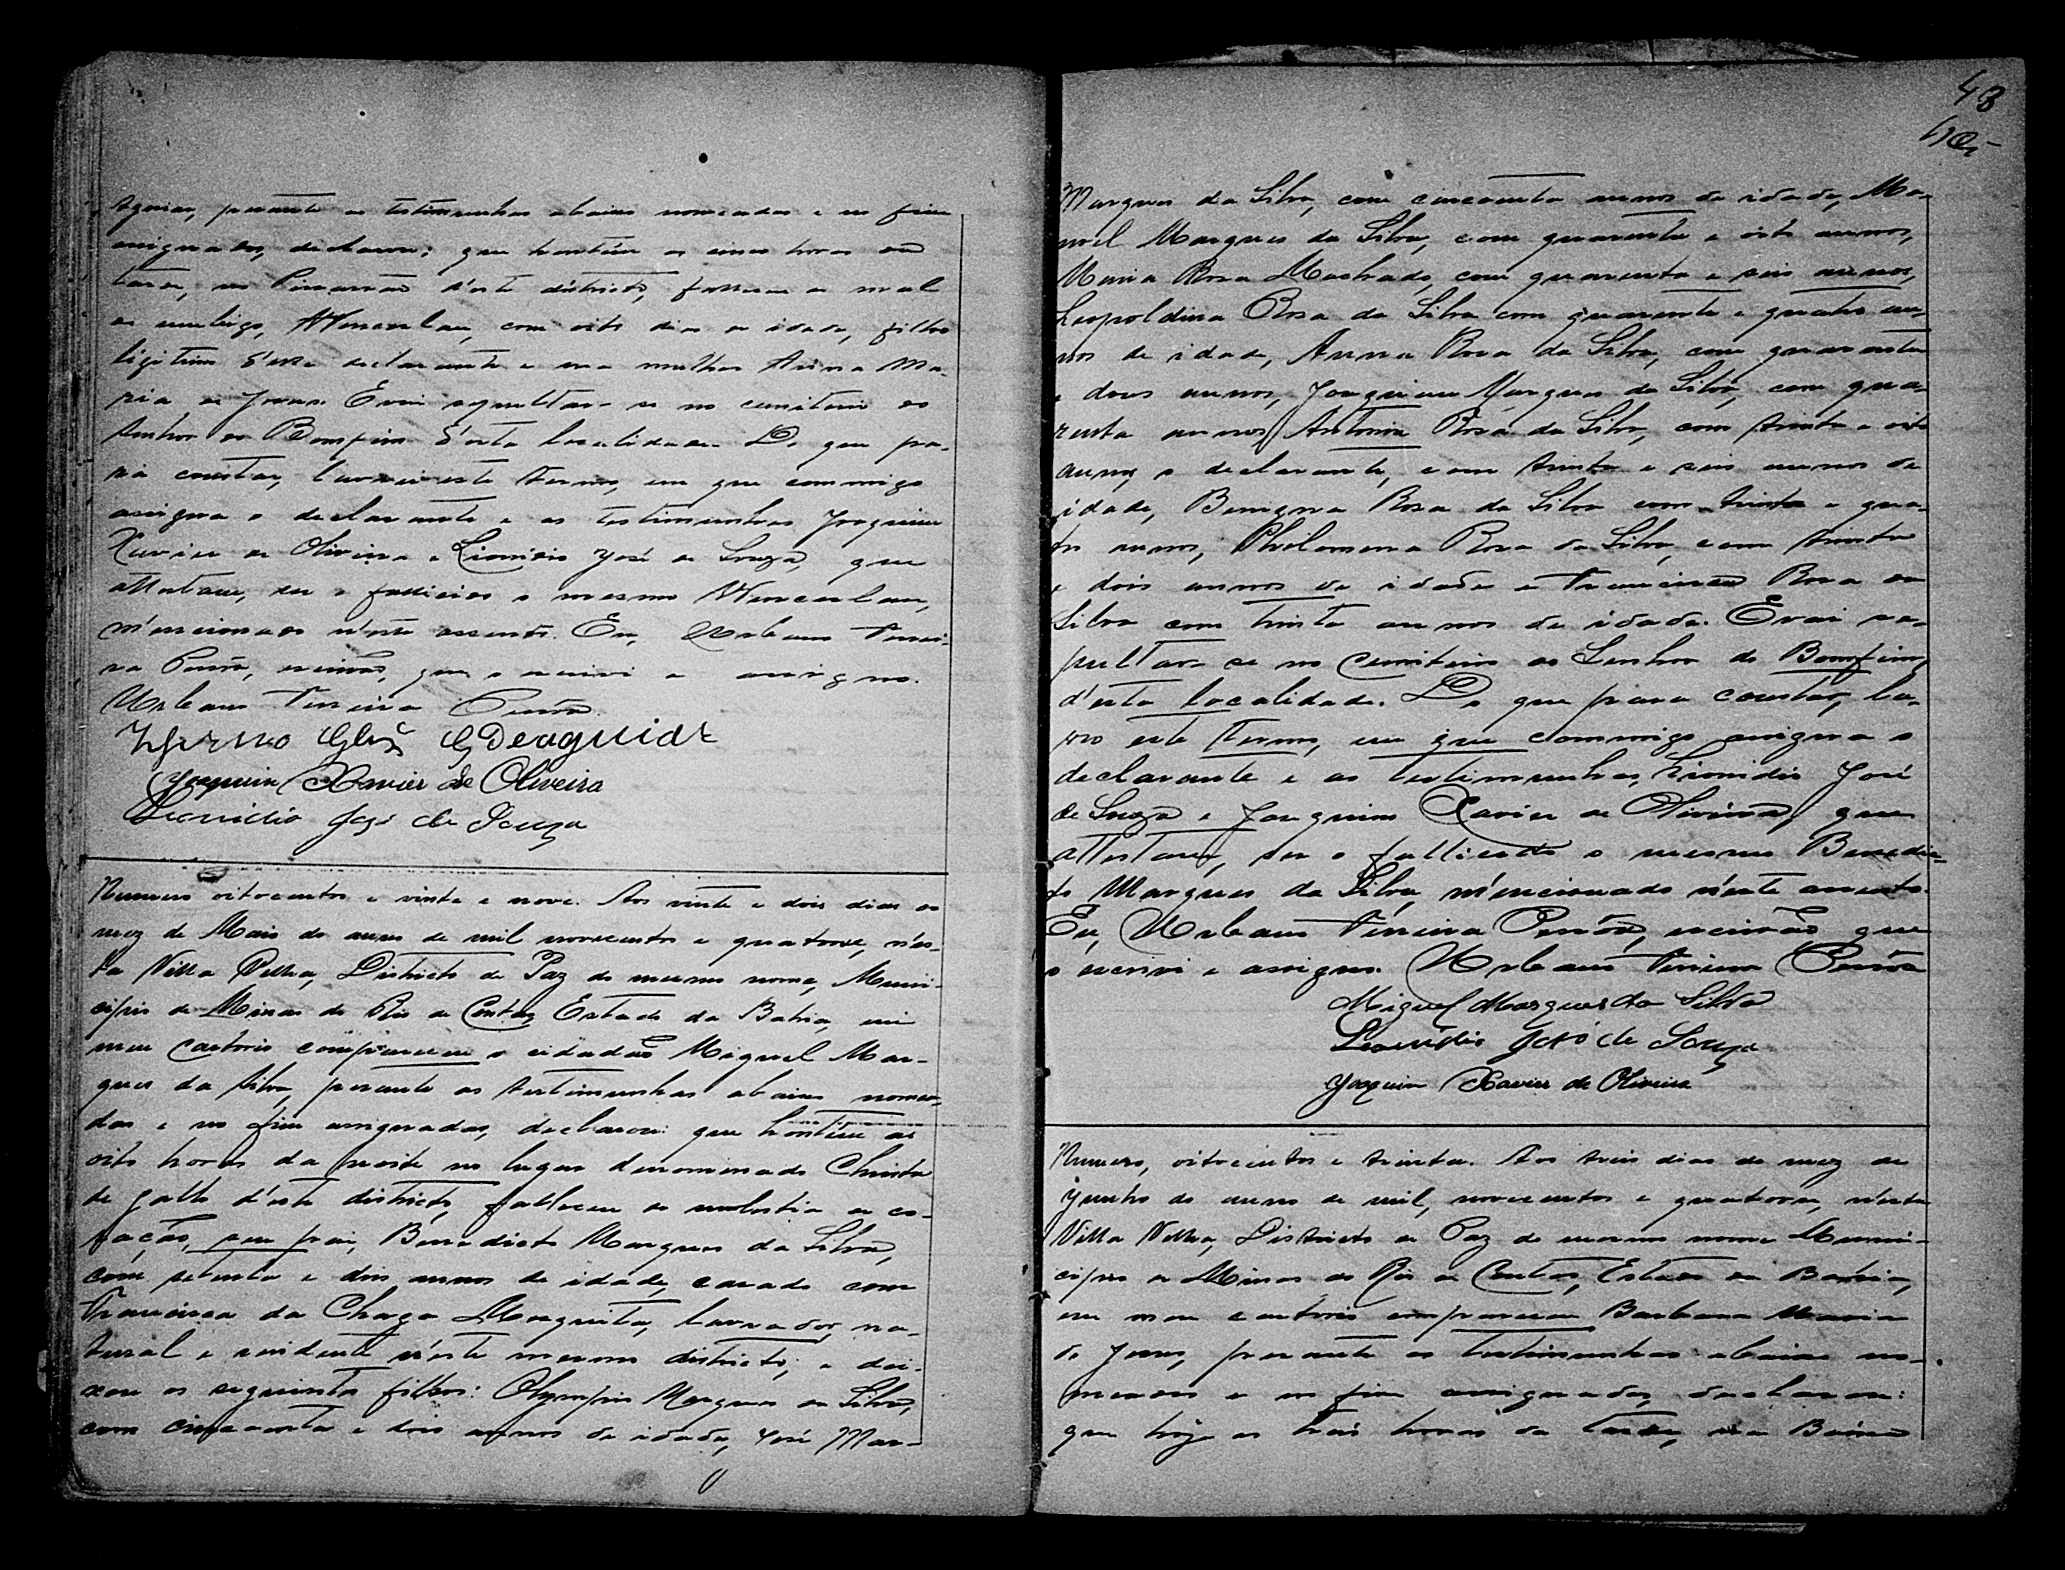 Aguiar, perante as testemunhas abaixo nomeadas e no fim
assignadas, declarou: que hontem as cinco horas da
tarde, no d'este districto, falleceu de mal
de umbigo, Wenceslau, com oito dias de idade, filho
legitimo d'elle declarante e sua mulher Anna Ma-
ria de Jesus. E vai sepultar-se no cemiterio do
Senhor do Bomfim d'esta localidade. Do que pa-
ra constar, lavrei este termo, em que commigo
assigna o declarante e as testemunhas Joaquim
Xavier de Oliveira e Leonidio José de Souza, que
attestam, ser o fallecido o mesmo Wenceslau,
mencionado n'este assento. Eu, Urbano Ferrei-
ra escrivão, que o escrivi e assigno.
Urbano Ferreira
Deaguiar
Joaquim Xavier de Oliveira
Leonidio José de Souza
Numero oitocentos e vinte e nove. Aos vinte e dois dias do
mez de Maio do anno de mil novecentos e quatorze, n'es-
ta Villa Velha, Districto de Paz do mesmo nome, Muni-
cipio de Minas do Rio de Contas, Estado da Bahia, em
meu cartorio compareceu o cidadão Miguel Mar-
ques da Silva, perante as testemunhas abaixo nomea-
das e no fim assignadas, declarou: que hontem as
oito horas da noite no lugar denominado Christa
de gallo d'este districto, falleceu de molestia de co-
ração, seu pai, Benedicto Marques da Silva,
com setenta e dois annos de idade, casado com
Francisca da Chaga Mesquita, lavrador, na-
tural e residente n'este mesmo districto; e dei-
xou os seguintes filhos: Olympio Marques da Silva,
com cincoenta e dois annos de idade, José Mar-
48
Marques da Silva, com cincoenta annos de idade, Ma-
noel Marques da Silva, com quarenta e oito annos,
Maria Rosa Machado, com quarenta e seis annos,
Leopoldina Rosa da Silva com quarenta e quatro an-
nos de idade, Anna Rosa da Silva, com quarenta
e dous annos, Joaquim Marques da Silva, com qua-
renta annos, Antonia Rosa da Silva, com trinta e oito
annos, o declarante, com trinta e seis annos de
idade, Benigna Rosa da Silva com trinta e qua-
tro annos, Philomena Rosa da Silva, com trinta
e dois annos de idade e Francisca Rosa da
Silva com trinta annos de idade. E vai se-
pultar-se no Cemiterio do Senhor do Bomfim,
d'esta localidade. Do que para constar, la-
vro este termo, em que commigo assigna o
declarante e as testemunhas, Leonidio José
de Souza e Joaquim Xavier de Oliveira, que
attestam, ser o fallecido o mesmo Benedic-
to Marques da Silva, mencionado n'este assento.
Eu, Urbano Ferreira escrivão que
o escrivi e assigno. Urbano Ferreira
Miguel Marques da Silva
Leonidio José de Souza
Joaquim Xavier de Oliveira
Numero, oitocentos e trinta. Aos tres dias do mez de
Junho do anno de mil, novecentos e quatorze, n'esta
Villa Velha, Districto de Paz do mesmo nome Muni-
cipio de Minas do Rio de Contas, Estado da Bahia,
em meu cartorio compareceu Barbara Maria
de Jesus, perante as testemunhas abaixo no-
meadas e no fim assignadas, declarou:
que hoje as trez horas da tarde, na